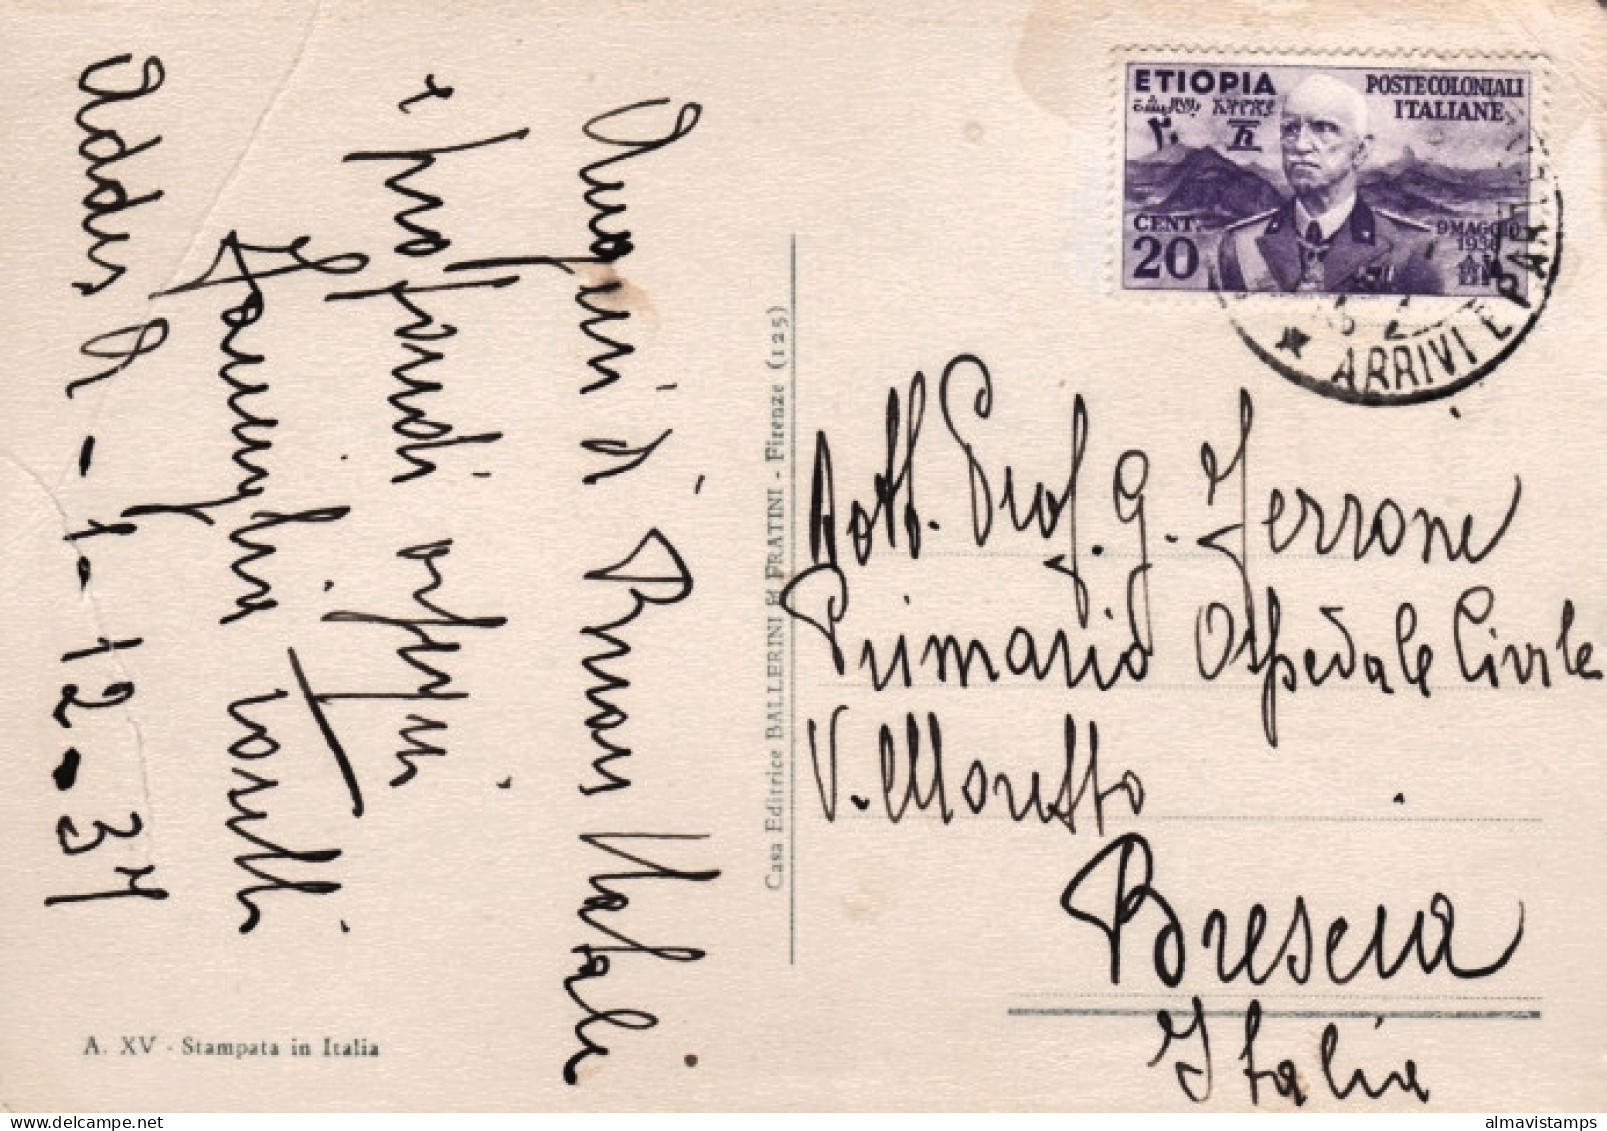 Auguri di Buon Natale
e profondi ossequi
Famiglia
Addis A. - 1 - 12 - 37
A. XV - Stampata in Italia
Casa Editrice BALLERINI & FRATINI - Firenze (125)
ETIOPIA
POSTE COLONIALI
ITALIANE
CENT.
20
9 MAGGIO
1936
ARRIVI E PAR
Dott. Prof. G. Ferrone
Primario Ospedale Civile
V. Moretto
Brescia
Italia
almavistamps.com